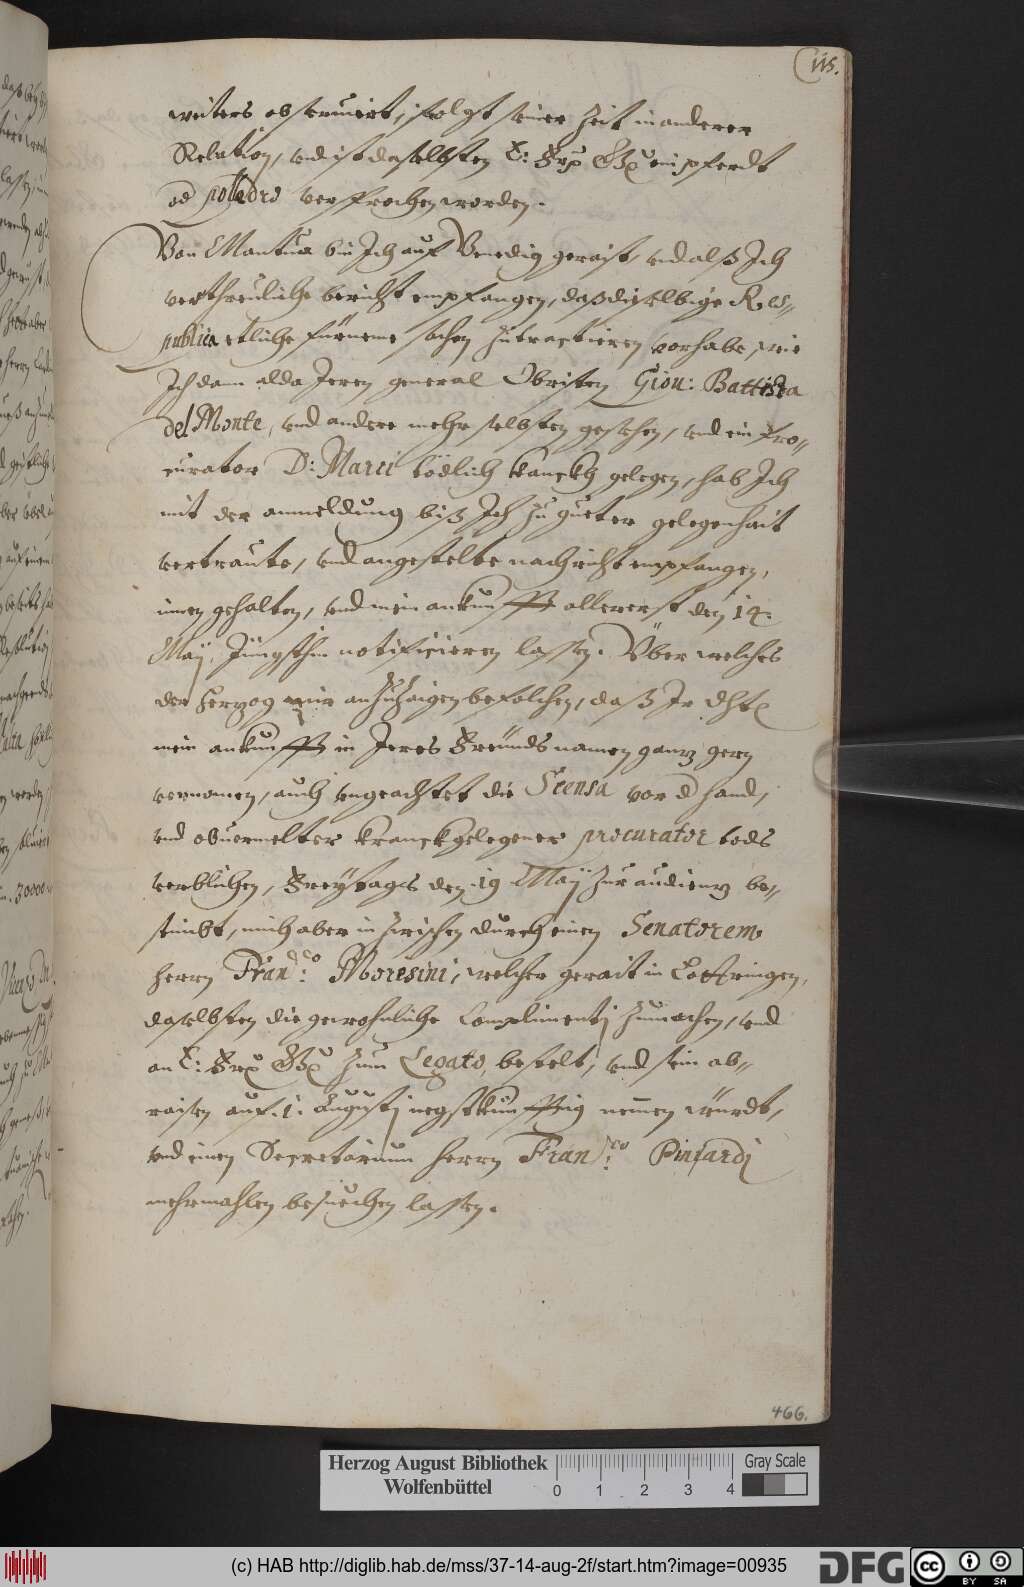 115.
weiters obseruiert, folgt seiner Zeit in anderer
Relation, vnd ist daselbsten E: Frl: Gl: ein pferdt
od polledro versprochen worden.
Von Mantua bin Ich auf Venedig geraist, vnd alß Ich
verthreuliche bericht empfangen, daß dieselbige Res-
publica etliche fürneme sachen zu tractieren vorhabe, wie
Ich dann alda Jeren general Obristen Giou: Battista
del Monte, vnd andere mehr selbsten gesehen, vnd ein Pro-
curator D: Marci tödlich kranckh gelegen, hab Ich
mit der anmeldung biß Ich zu gueter gelegenhait
vertraute, vnd angestelte nachricht empfangen,
innen gehalten, vnd mein ankunfft allererst den 14.
Maij Jüngsthin notificieren lassen. Über welches
der Herzog mir anzuzaigen befolchen, daß Ir Dht
mein ankunfft in Jeres Freündts namen ganz gern
vernomen, auch vngeachtet die Scensa vor d hand,
vnd obuermelter kranckhgelegener procurator tods
verblichen, Freytags den 19 Maij zur audienz be-
stimbt, mich aber in zwischen durch einen Senatorem
herrn Franco: Moresini, welcher gerait in Lottringen,
daselbsten die gewohnliche Complimenti zumachen, vnd
an E: Frl: Gl: zum Legato bestelt, vnd sein ab-
raisen auf .1. Augusti negstkünfftig nemmen würdt,
vnd einen Secretarium herrn Franco: Pinsardi
mehrmahlen besuechen lassen.
466.
Herzog August Bibliothek
Wolfenbüttel
0 1 2 3 4
Gray Scale
(c) HAB http://diglib.hab.de/mss/37-14-aug-2f/start.htm?image=00935
DFG
cc BY SA